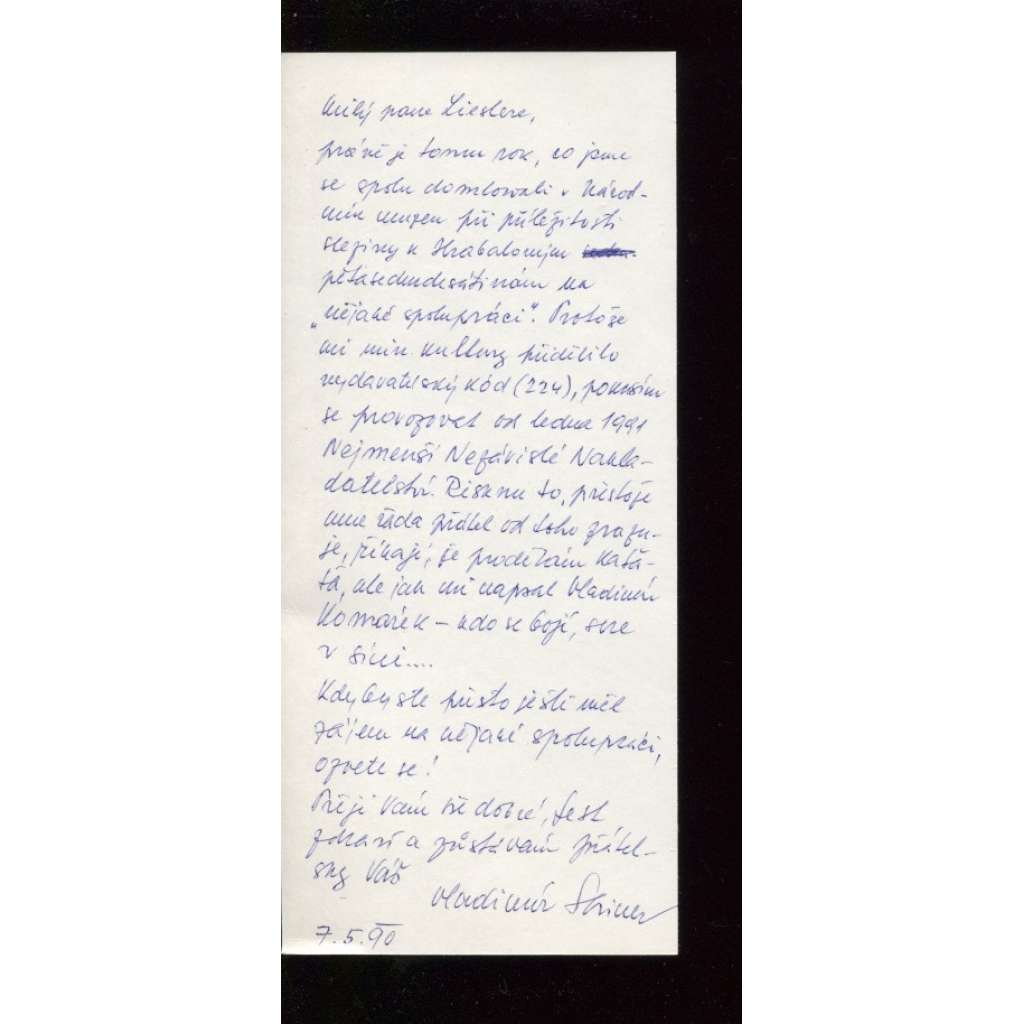 Milý pane Lieslere,
právě je tomu rok, co jsme
se spolu domlouvali v Národ-
ním muzeu při příležitosti
sleziny k Hrabalovým
pětasedmdesátinám na
„nějaké spolupráci“. Protože
mi min. kultury přidělilo
vydavatelský kód (224), pokusím
se provozovat od ledna 1991
Nejmenší Nezávislé Nakla-
datelství. Risknu to, přestože
mne řada přátel od toho zrazu-
je, říkají, že prodělám kaťa-
ta, ale jak mi napsal Vladimír
Komárek – kdo se bojí, sere
v síni....
Kdybyste přesto ještě měl
zájem na nějaké spolupráci,
ozvete se!
Přeji Vám vše dobré, fest
zdraví a zůstávám přátel-
sky Váš
Vladimír
7.5.90